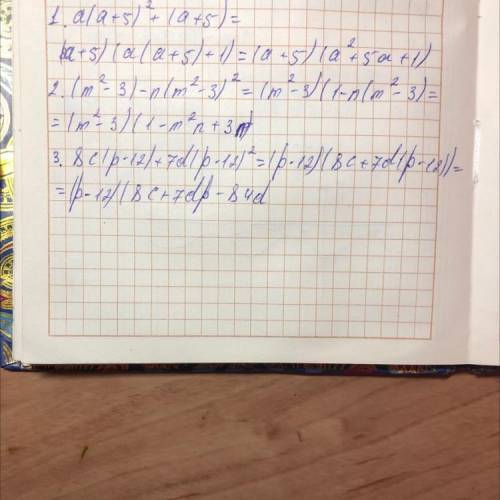 1. a(a+5)² + (a+5) =
(a+5)(a(a+5)+1) = (a+5)(a²+5a+1)
2. (m²-3)-n(m²-3)² = (m²-3)(1-n(m²-3) =
= (m²-3)(1-m²n+3n
3. 8c(p-12)+7d(p-12)² = (p-12)(8c+7d(p-12)) =
= (p-12)(8c+7dp-84d